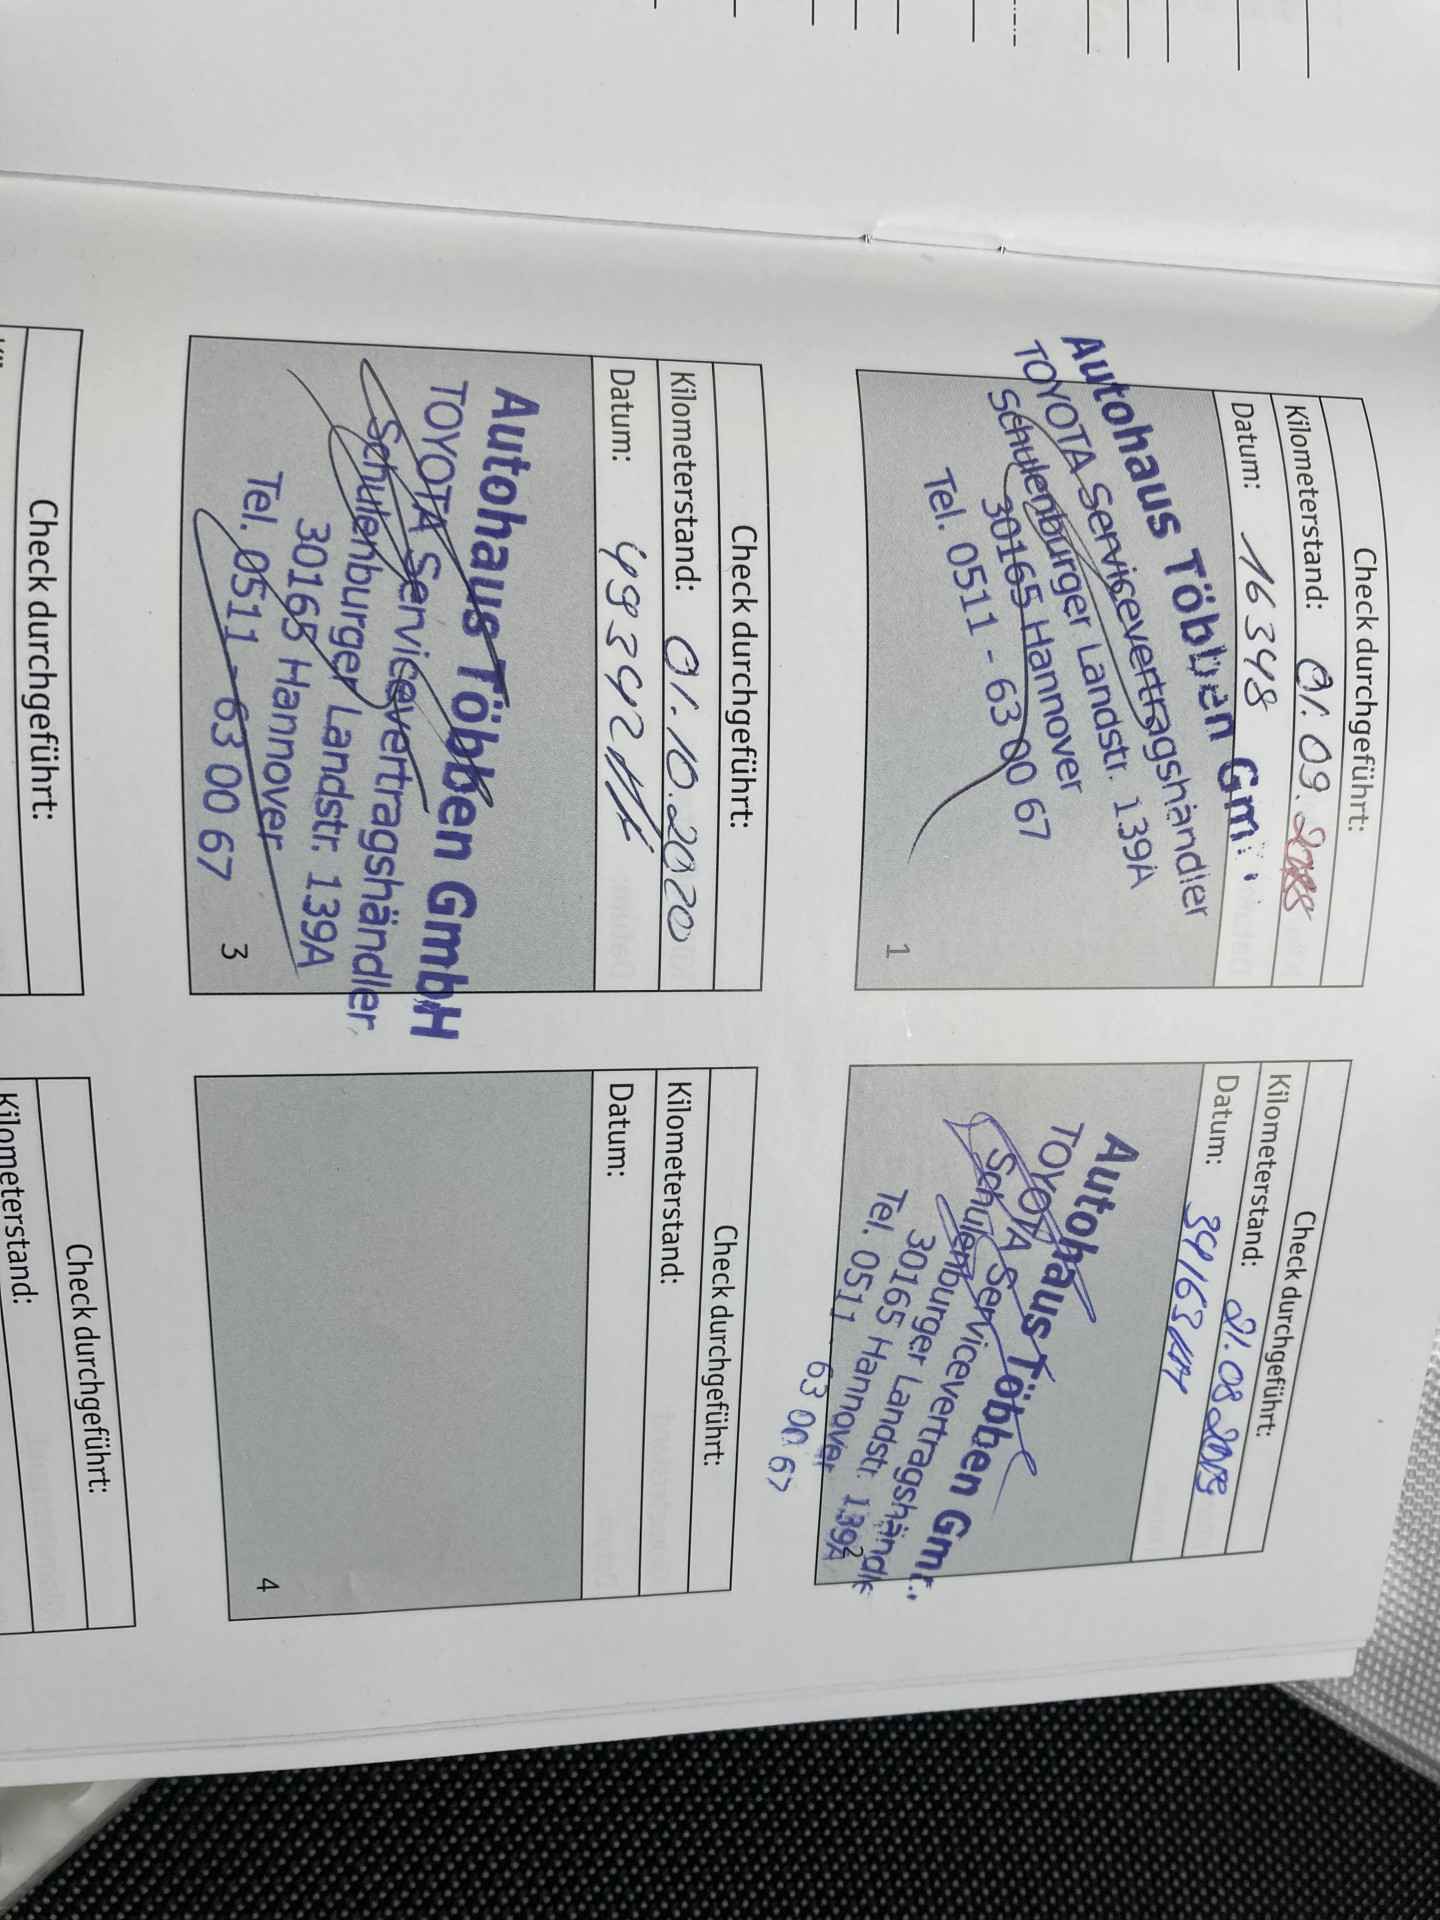 Check durchgeführt:
Kilometerstand: 01.09.
Datum: 16348
Autohaus Többen Gm
TOYOTA Servicevertragshändler
Schulenburger Landstr. 139A
30165 Hannover
Tel. 0511 - 63 00 67
1
Check durchgeführt:
Kilometerstand: 21.08.2019
Datum: 34163
Autohaus Többen Gm
TOYOTA Servicevertragshändle
Schulenburger Landstr. 139A
30165 Hannover
Tel. 0511 63 00 67
2
Check durchgeführt:
Kilometerstand: 01.10.2020
Datum: 49342
Autohaus Többen GmbH
TOYOTA Servicevertragshändler
Schulenburger Landstr. 139A
30165 Hannover
Tel. 0511 - 63 00 67
3
Check durchgeführt:
Kilometerstand:
Datum:
4
Check durchgeführt:
Check durchgeführt:
Kilometerstand: